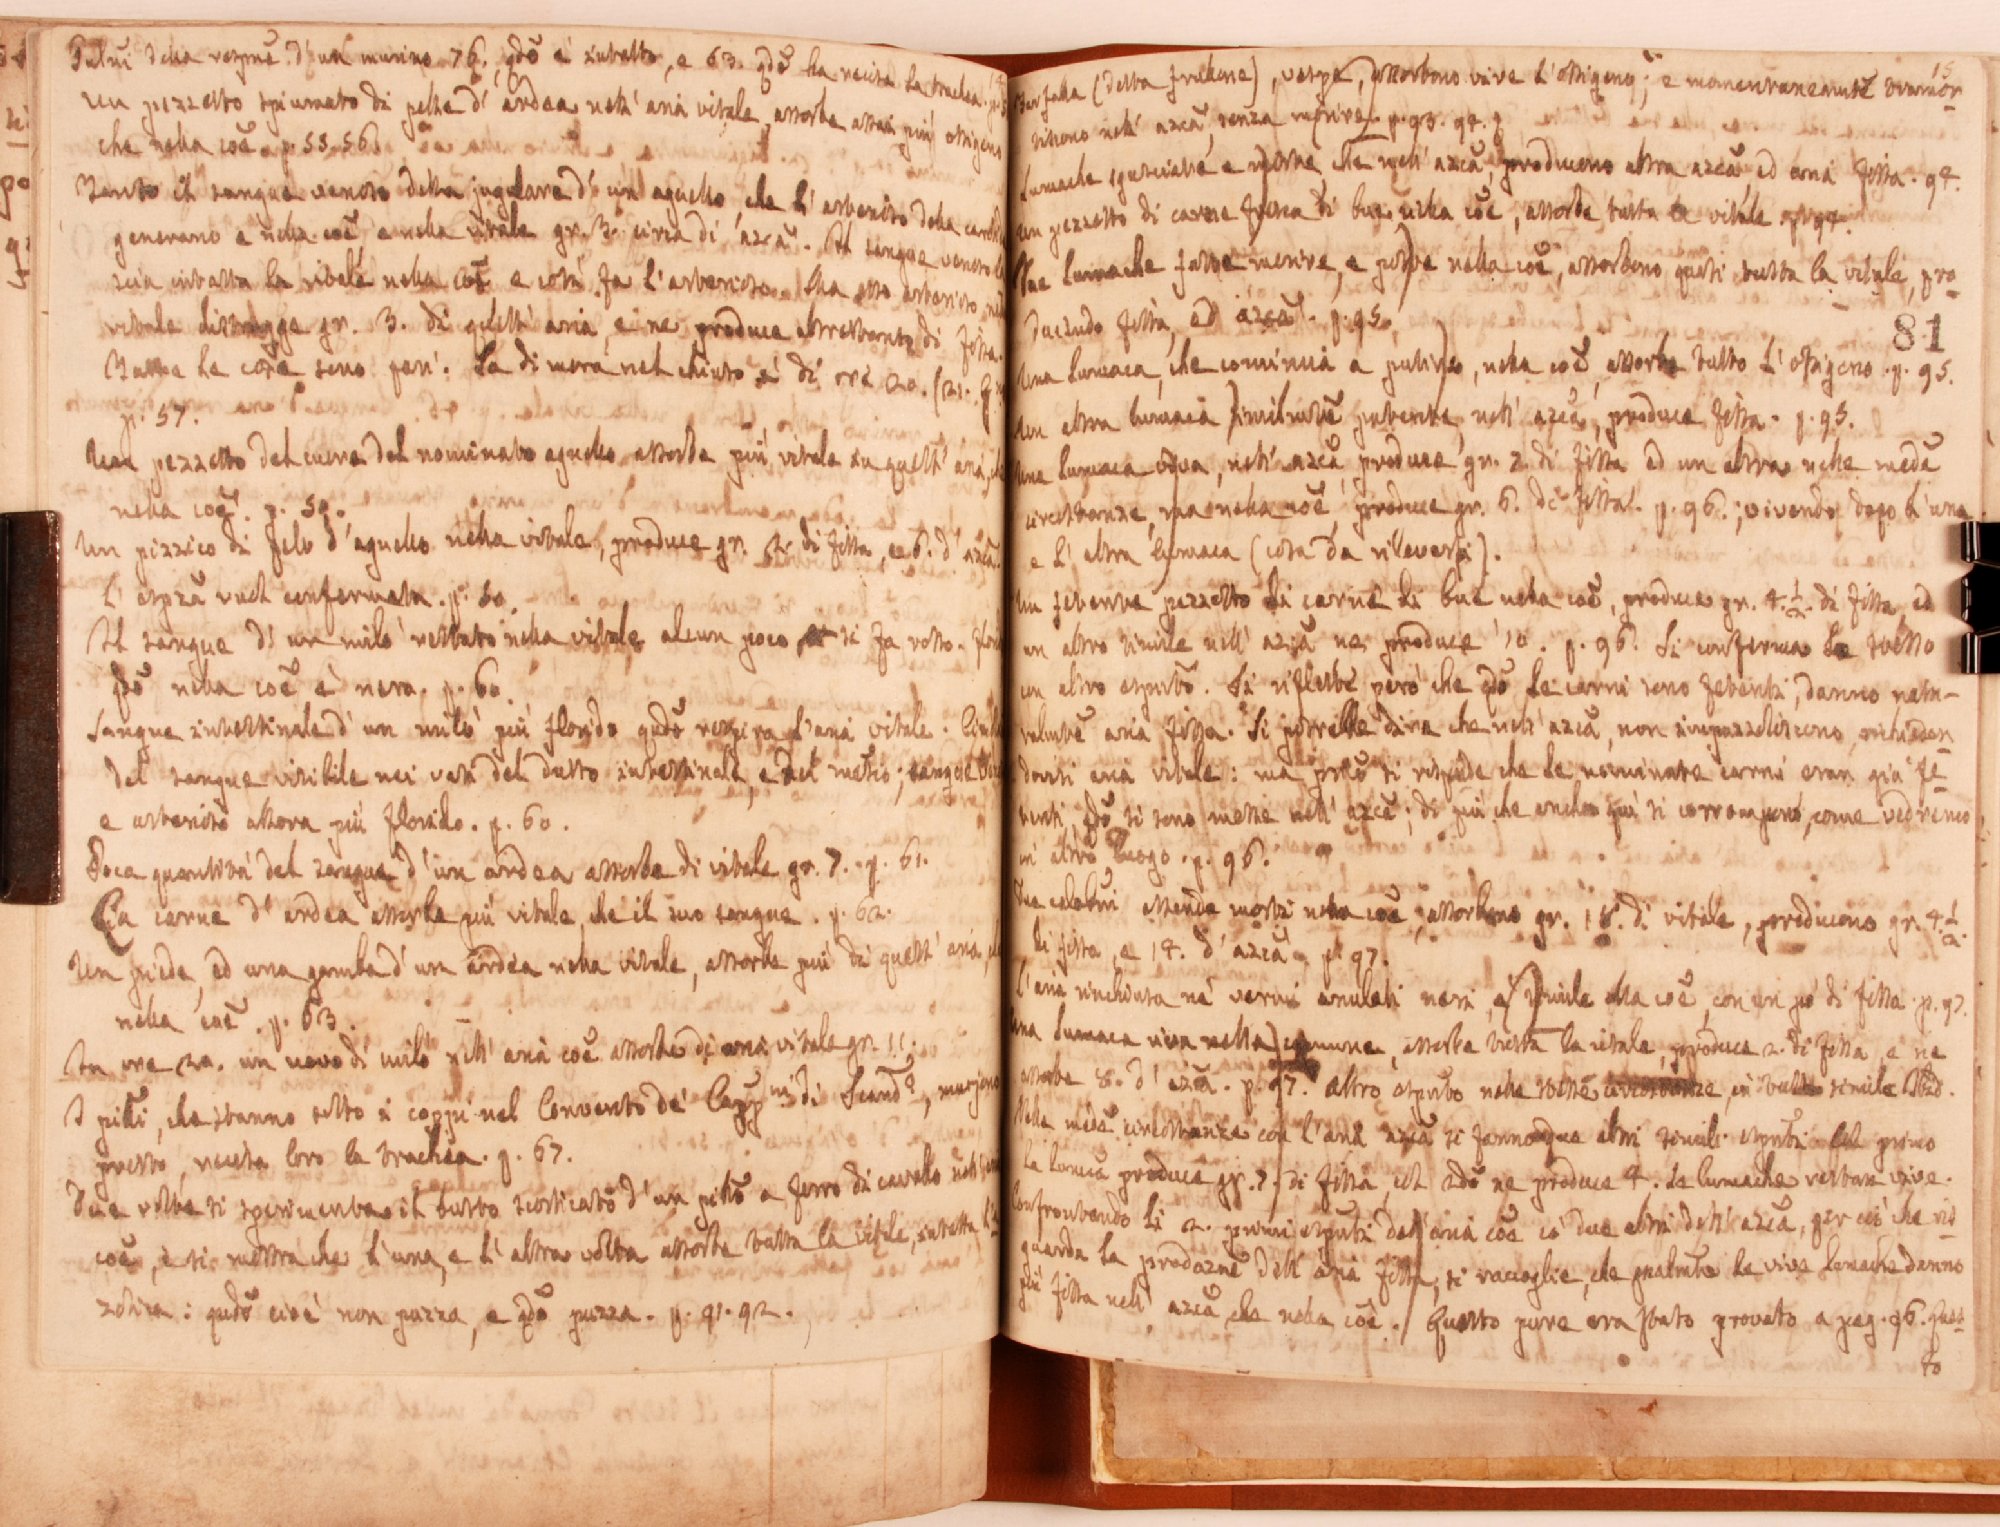 Pulsi della respirne d'un murino 76. qdo è intatto, e 63. qdo ha recisa la trachea.
Un pezzetto spiumato di pelle d'ardea nell' aria vitale, assorbe assai più ossigeno
che nella coe. p. 55. 56.
Tanto il sangue venoso della jugolare d'un agnello, che l'arterioso della
generano e nella coe, e nella vitale gr. 3. circa di azca. Il sangue venoso
intatta la vitale nella coe e così fa l'arterioso. Ma esso arterioso
vitale distrugge gr. 3. di quest' aria, e ne produce altrettanto di fissa.
Tutte le cose sono pari. La dimora nel chiuso è di ore 20.
p. 57.
Un pezzetto del cuore del nominato agnello assorbe più vitale in quest' aria, che
nella coe. p. 59.
Un pizzico di fele d'agnello nella vitale, produce gr. 2. di fissa, e 6. d'azca.
L'esprza vuol confermata. p. 60.
Il sangue d'un milo restato nella vitale alcun poco si fa rosso.
qdo nella coe è nero. p. 60.
Sangue intestinale d'un milo più florido qudo respira l'aria vitale.
del sangue visibile nei vasi del dutto intestinale, e del mesio; sangue
e arterioso allora più florido. p. 60.
Poca quantità del sangue d'un ardea assorbe di vitale gr. 7. p. 61.
La carne d'ardea assorbe più vitale, che il suo sangue. p. 62.
Un piede, ed una gamba d'un ardea nella vitale, assorbe più di quest' aria,
nella coe. p. 63.
In ore 20. un uovo di milo nell' aria coe assorbe di aria vitale gr. 11.
I pilli, che stanno sotto i coppi nel Convento de' Capp.ni di Scand.o, muojono
presto, recisa loro la trachea. p. 67.
Due volte si sperimenta il busto scorticato d'un pillo a ferro di cavallo nell'
coe, e si mostra che l'una, e l'altra volta assorbe tutta la vitale, intatta
zotica: qudo cioè non puzza, e qdo puzza. p. 91. 92.
15
Farfalla (detta fridone), vespe, assorbono vive l'ossigeno; e momentaneamte
nell' azca, senza morire. p. 93. 94.
Lumache sgusciate e morte che nell' azca, producono altra azca, ed aria fissa. 94.
Un pezzetto di carne fresca di bue nella coe, assorbe tutta la vitale p. 94.
Due lumache fatte morire, e poste nella coe, assorbono quasi tutta la vitale, pro-
ducendo fissa, ed azca. p. 95.
81
Una lumaca, che comincia a putire, nella coe, assorbe tutto l'ossigeno. p. 95.
Un altra lumaca similmte putente, nell' azca, produce fissa. p. 95.
Una lumaca viva, nell' azca, produce gr. 2. di fissa ed un altra nelle mede
circostanze, ma nella coe, produce gr. 6. di fissa. p. 96.; vivendo dopo l'una
e l'altra lumaca (cosa da rilevarsi).
Un fetente pezzetto di carne di bue nella coe, produce gr. 4. 1/2. di fissa, ed
un altro simile nell' azca ne produce 10. p. 96. Si conferma il tutto
un altro esprto. Si riflette però che qdo le carni sono fetenti, danno natu-
ralmte aria fissa. Si potrebbe dire che nell' azca, non impuzzoliscono, richieden-
dovisi aria vitale: ma però si risponde che le nominate carni eran già fe-
tenti, qdo si sono messe nell' azca; di più che anche qui si corrompono, come vedremo
in altro luogo. p. 96.
Due colubri essendo morti nella coe, assorbono gr. 18. di vitale, producono gr. 4. 1/2.
di fissa, e 14. d'azca. p. 97.
L'aria rinchiusa ne' vermi anulati neri, è simile alla coe, con un pò di fissa. p. 97.
Una lumaca viva nella comune, assorbe tutta la vitale, produce 2. di fissa, e ne
assorbe 8. d'azca. p. 97. Altro esprto nelle stesse circostanze, in tutto simile Ibid.
Nelle mede circostanze con l'aria azca si fanno due altri simili esprti. Nel primo
la lumaca produce gr. 7. di fissa, nel 2do ne produce 4. Le lumache restan vive.
Confrontando li 2. primi esprti dell' aria coe co' due altri dell' azca, per ciò che ri-
guarda la produzne dell' aria fissa, si raccoglie, che qualmte le vive lumache danno
più fissa nell' azca, che nella coe. Questo pure era stato provato a pag. 96. Ques-
to